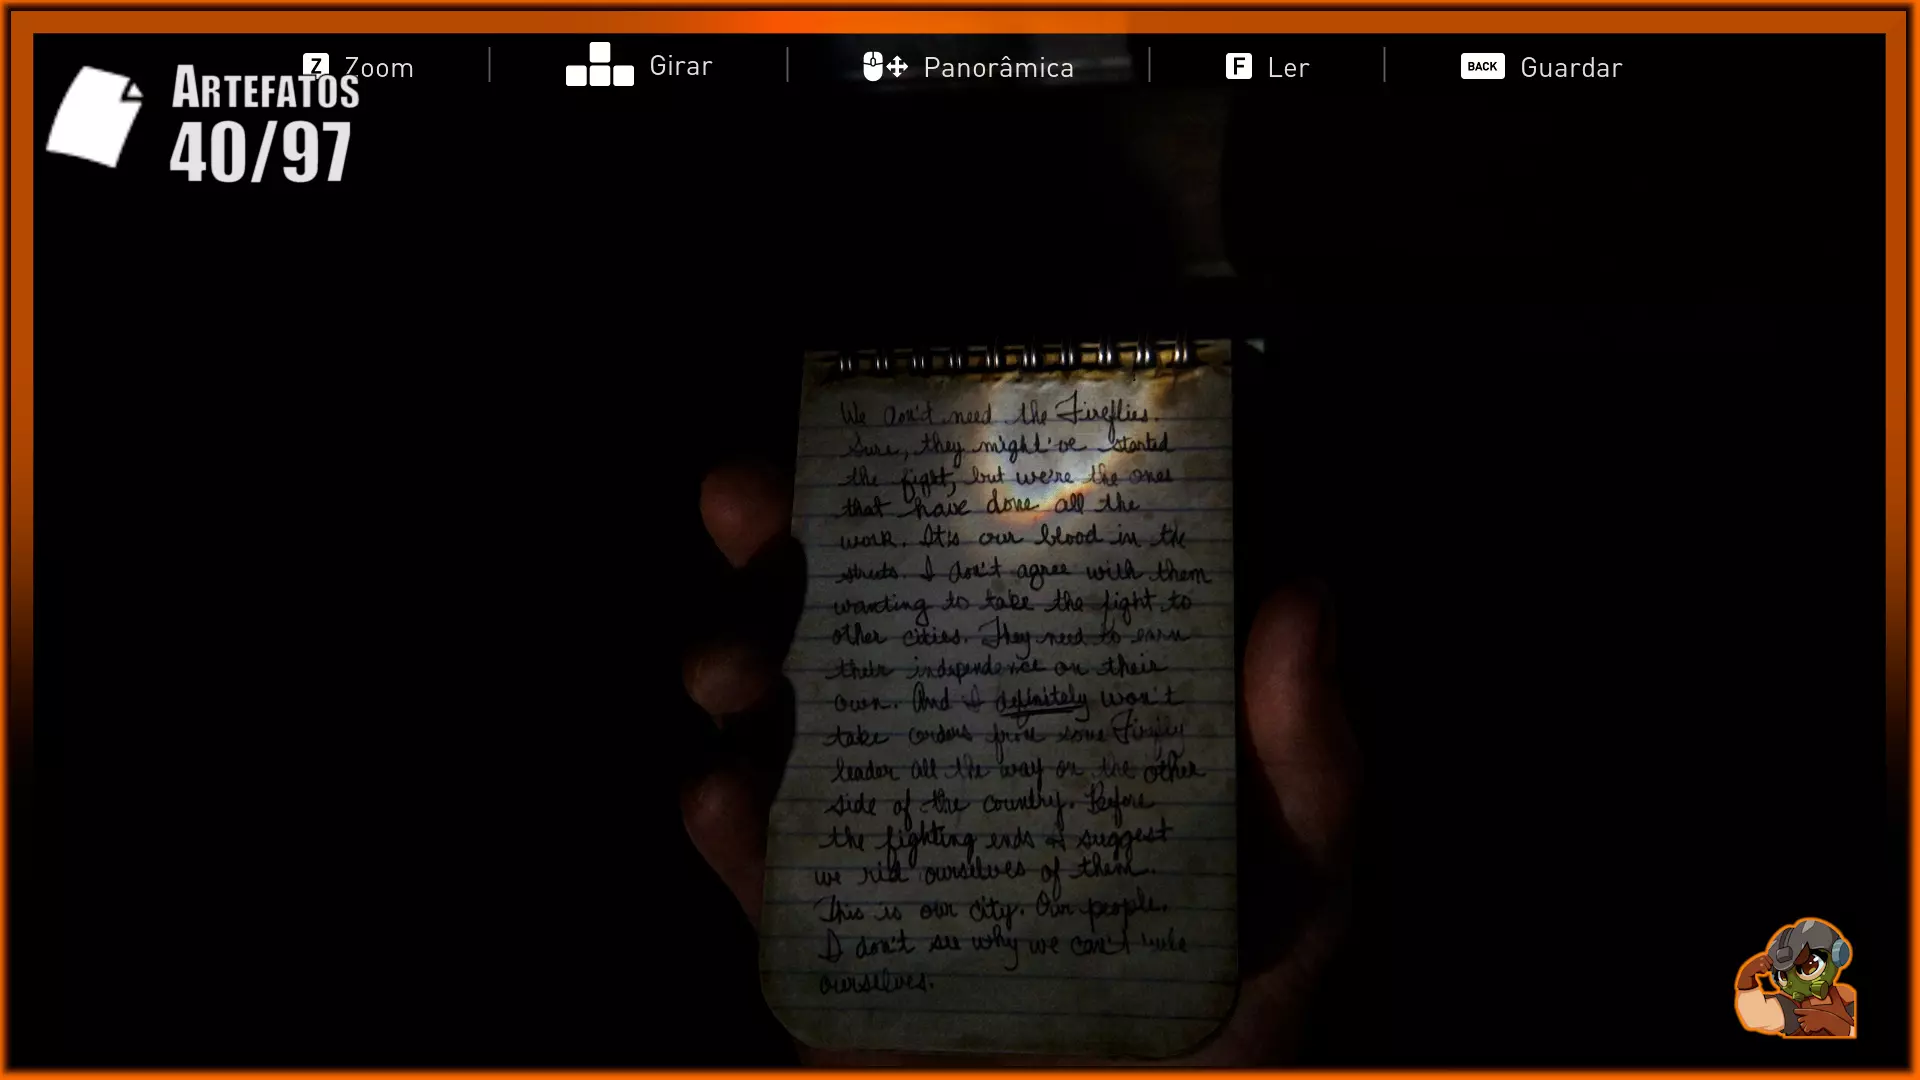 Z Zoom
Girar
Panorâmica
F Ler
BACK Guardar
ARTEFATOS
40/97
We don't need the Fireflies.
Sure, they might've started
the fight, but we're the ones
that have done all the
work. It's our blood in the
streets. I don't agree with them
wanting to take the fight to
other cities. They need to earn
their independence on their
own. And I definitely won't
take orders from some Firefly
leader all the way on the other
side of the country. Before
the fighting ends I suggest
we rid ourselves of them.
This is our city. Our people.
I don't see why we can't rule
ourselves.